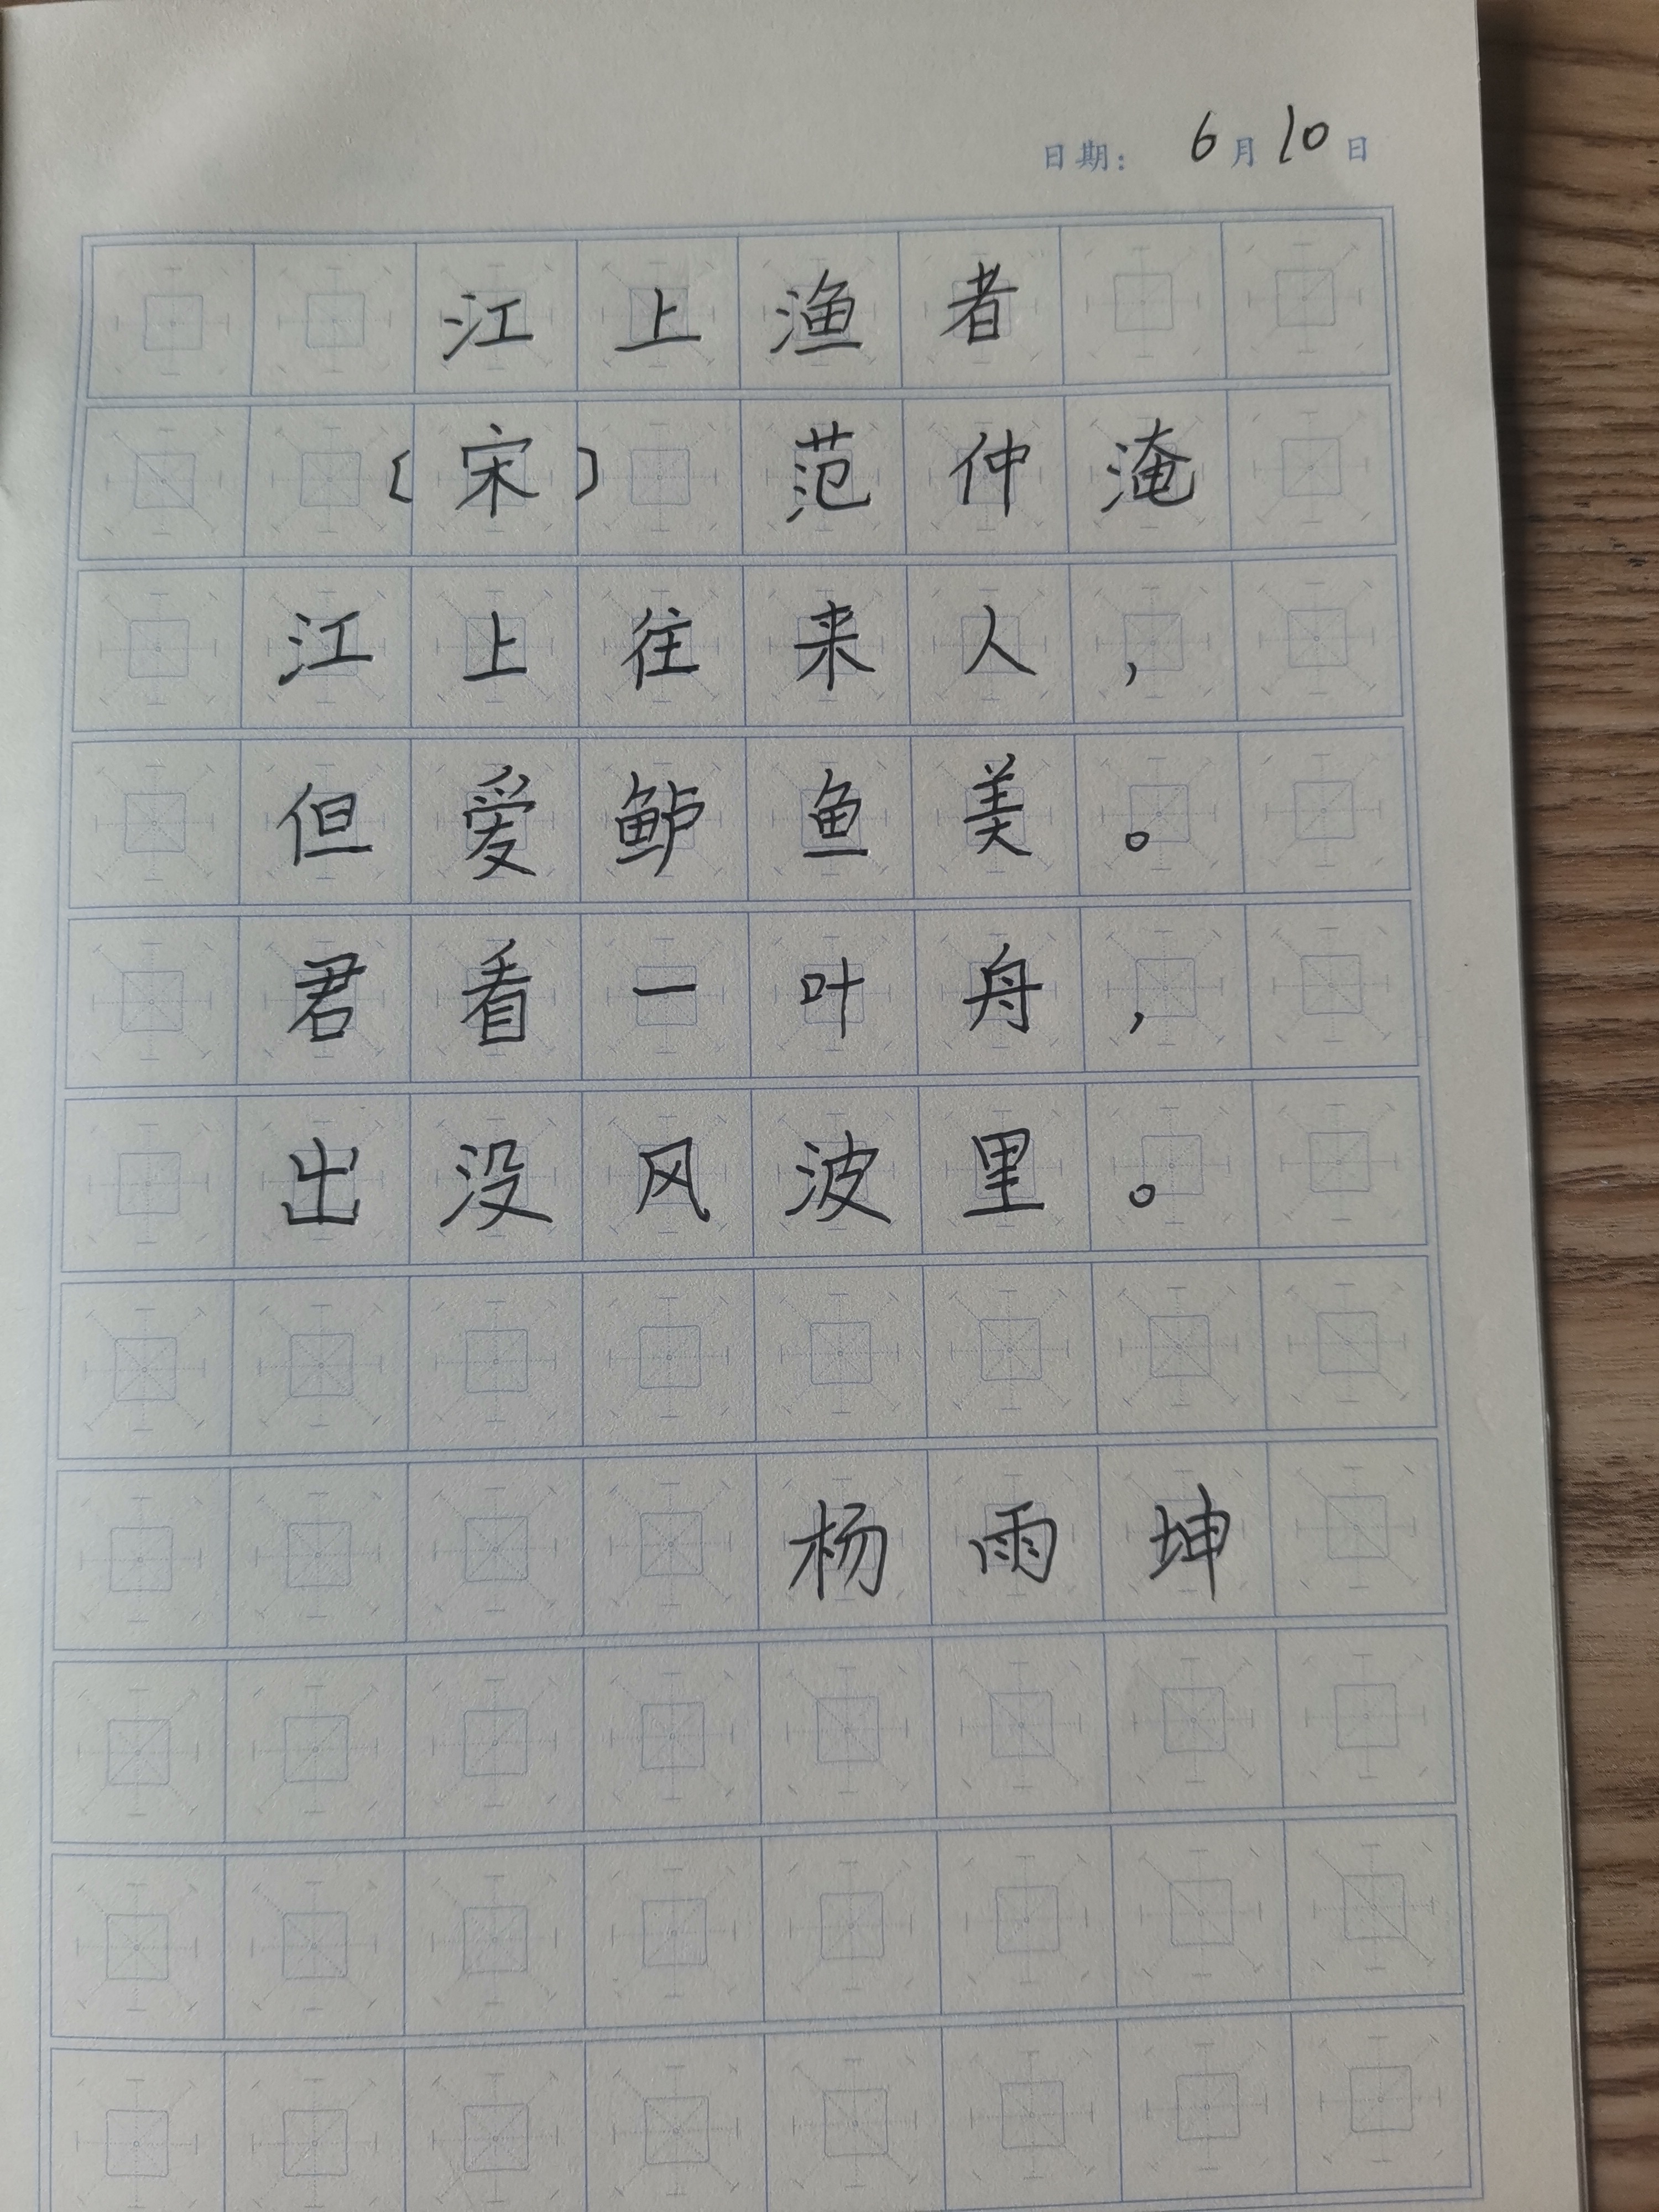 日期： 6月10日
江上渔者
〔宋〕 范仲淹
江上往来人，
但爱鲈鱼美。
君看一叶舟，
出没风波里。
杨雨坤